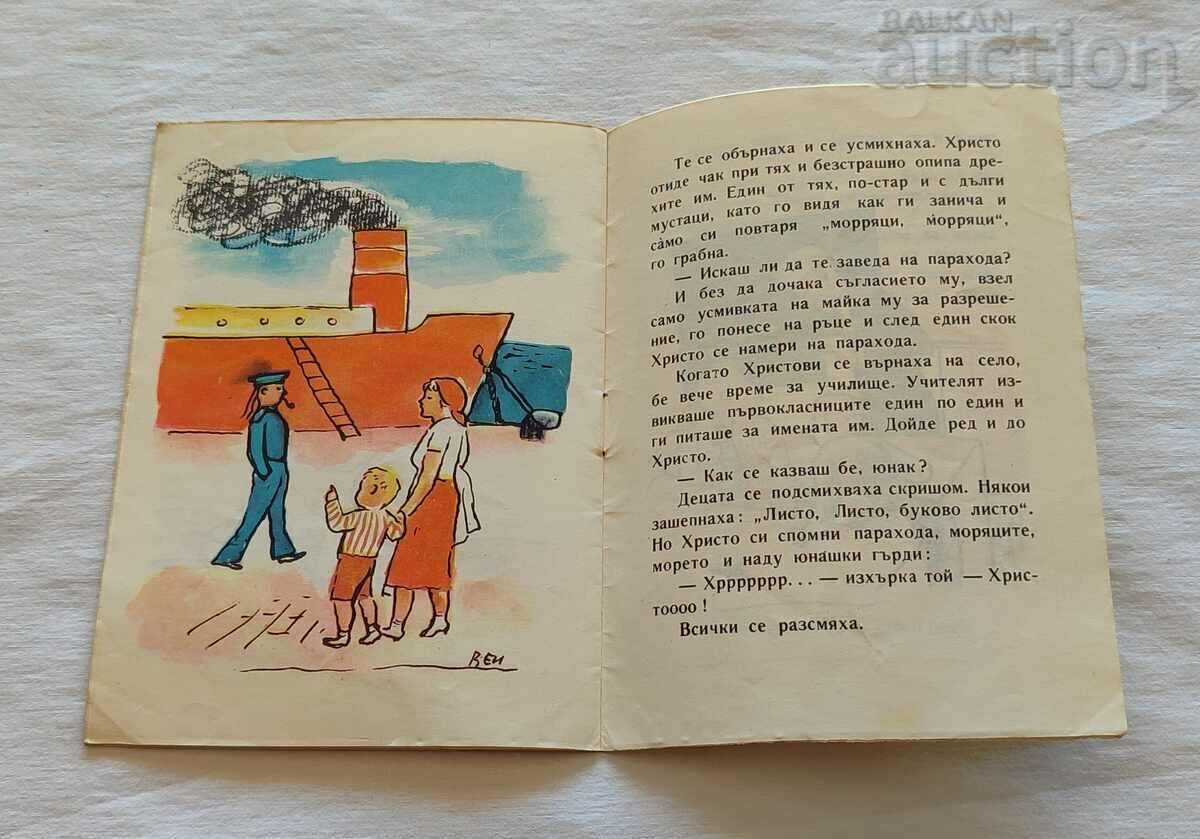 BALKAN
auction
Те се обърнаха и се усмихнаха. Христо
отиде чак при тях и безстрашно опипа дре-
хите им. Един от тях, по-стар и с дълги
мустаци, като го видя как ги занича и
са̀мо си повтаря „морряци, морряци“,
го грабна.
— Искаш ли да те заведа на парахода?
И без да дочака съгласието му, взел
само усмивката на майка му за разреше-
ние, го понесе на ръце и след един скок
Христо се намери на парахода.
Когато Христови се върнаха на село,
бе вече време за училище. Учителят из-
викваше първокласниците един по един и
ги питаше за имената им. Дойде ред и до
Христо.
— Как се казваш бе, юнак?
Децата се подсмихваха скришом. Някои
зашепнаха: „Листо, Листо, буково листо“.
Но Христо си спомни парахода, моряците,
морето и наду юнашки гърди:
— Хррррррр... — изхърка той — Хрис-
тоооо!
Всички се разсмяха.
ВЕИ